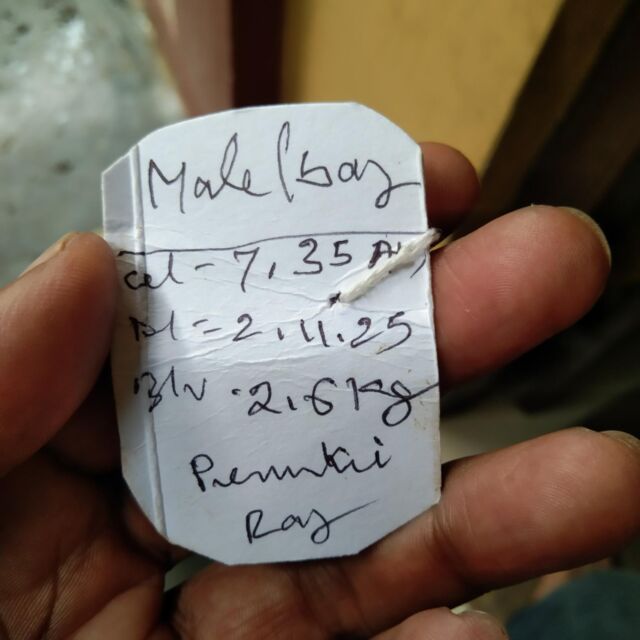 Male/boy
at - 7.35 AM
Dt = 2.11.25
B/w - 2.6 Kg
Ray